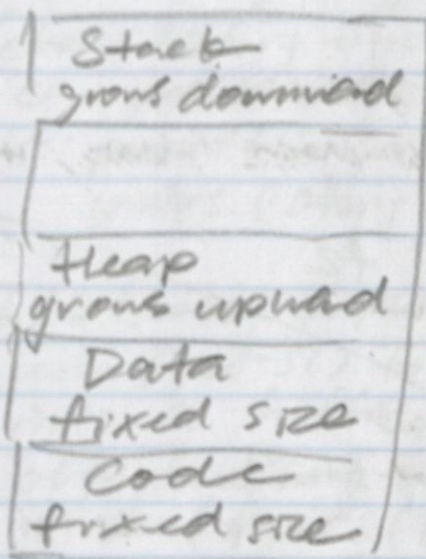 Stack
grows downward
Heap
grows upward
Data
fixed size
Code
fixed size